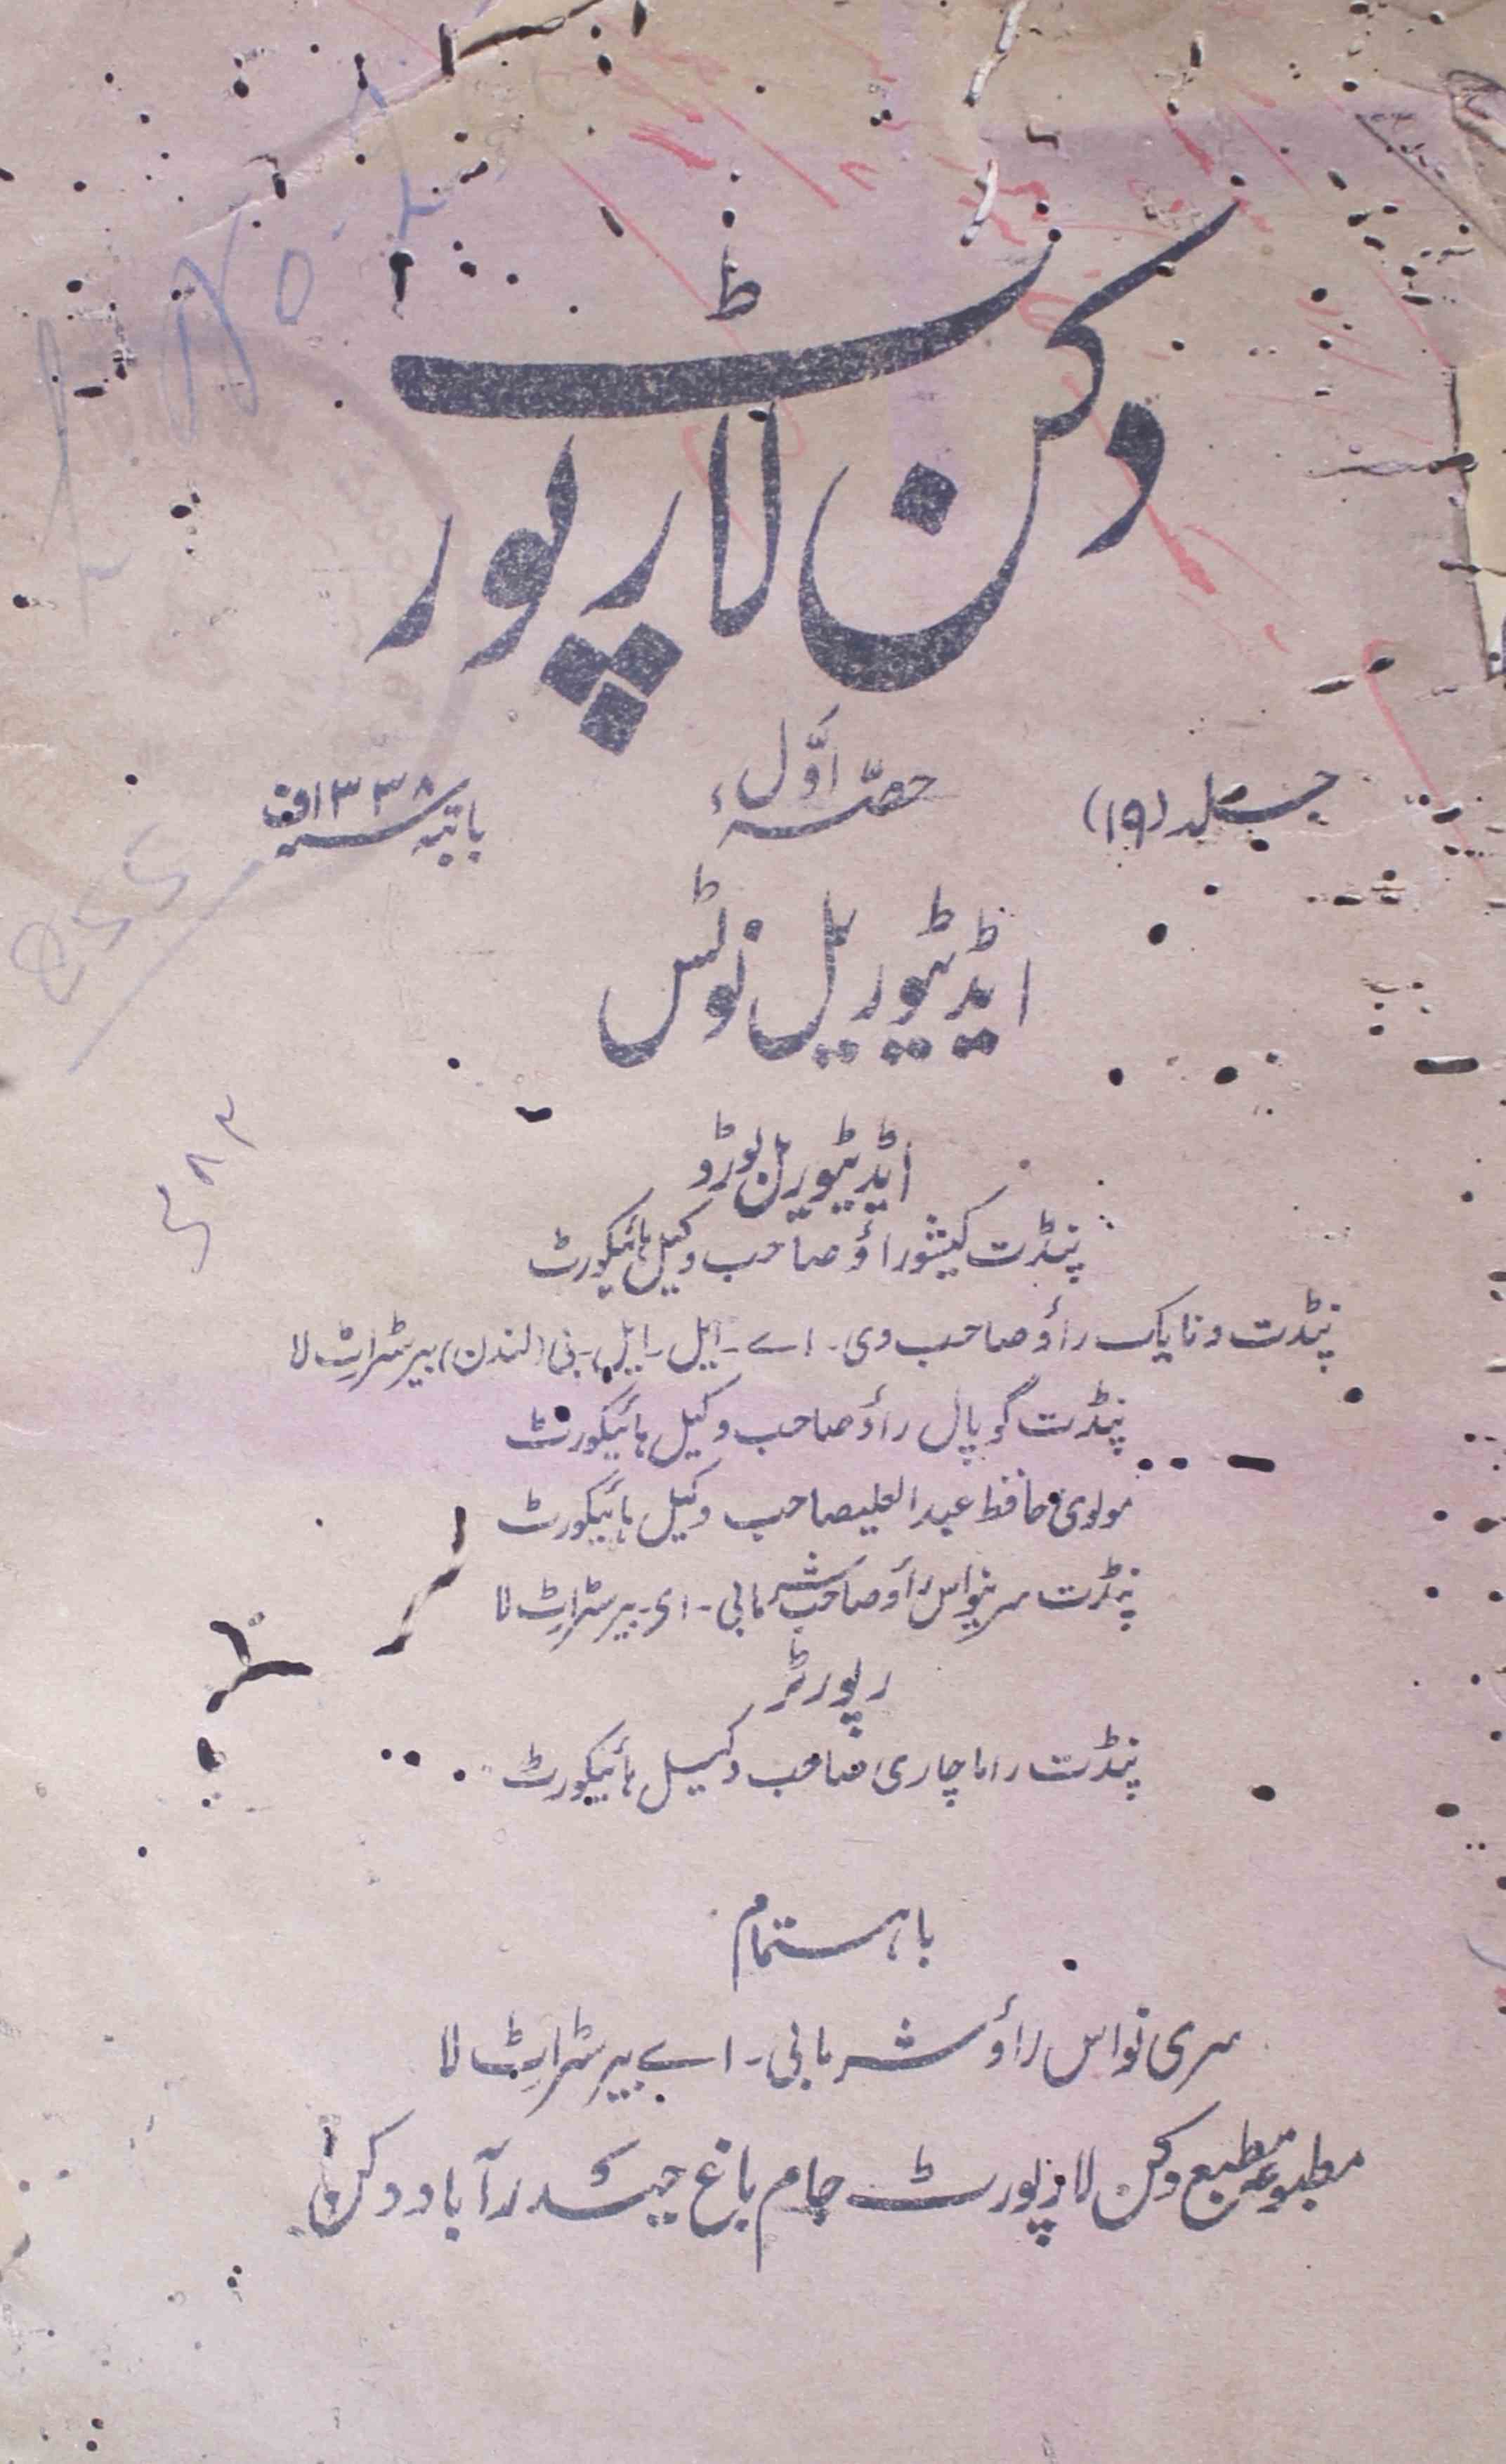 دکن لا رپورٹ
جلد (۱۹)
حصّہ اوّل
بابتہ سنہ ۱۳۳۸ف
ایڈیٹوریل نوٹس
ایڈیٹوریل بورڈ
پنڈت کیشوراؤ صاحب وکیل ہائیکورٹ
پنڈت ونایک راؤ صاحب ودی۔ اے۔ ایل۔ ایل۔ بی (لندن) بیرسٹراٹ لا
پنڈت گوپال راؤ صاحب وکیل ہائیکورٹ
مولوی حافظ عبدالعلیصاحب وکیل ہائیکورٹ
پنڈت سرینواس راؤ صاحب شرما بی۔ ای۔ بیرسٹراٹ لا
رپورٹر
پنڈت راما چاری صاحب وکیل ہائیکورٹ
باہتمام
سری نواس راؤ شرما بی۔ اے بیرسٹراٹ لا
مطبوعہ مطبع دکن لا رپورٹ جام باغ حیدرآباد دکن